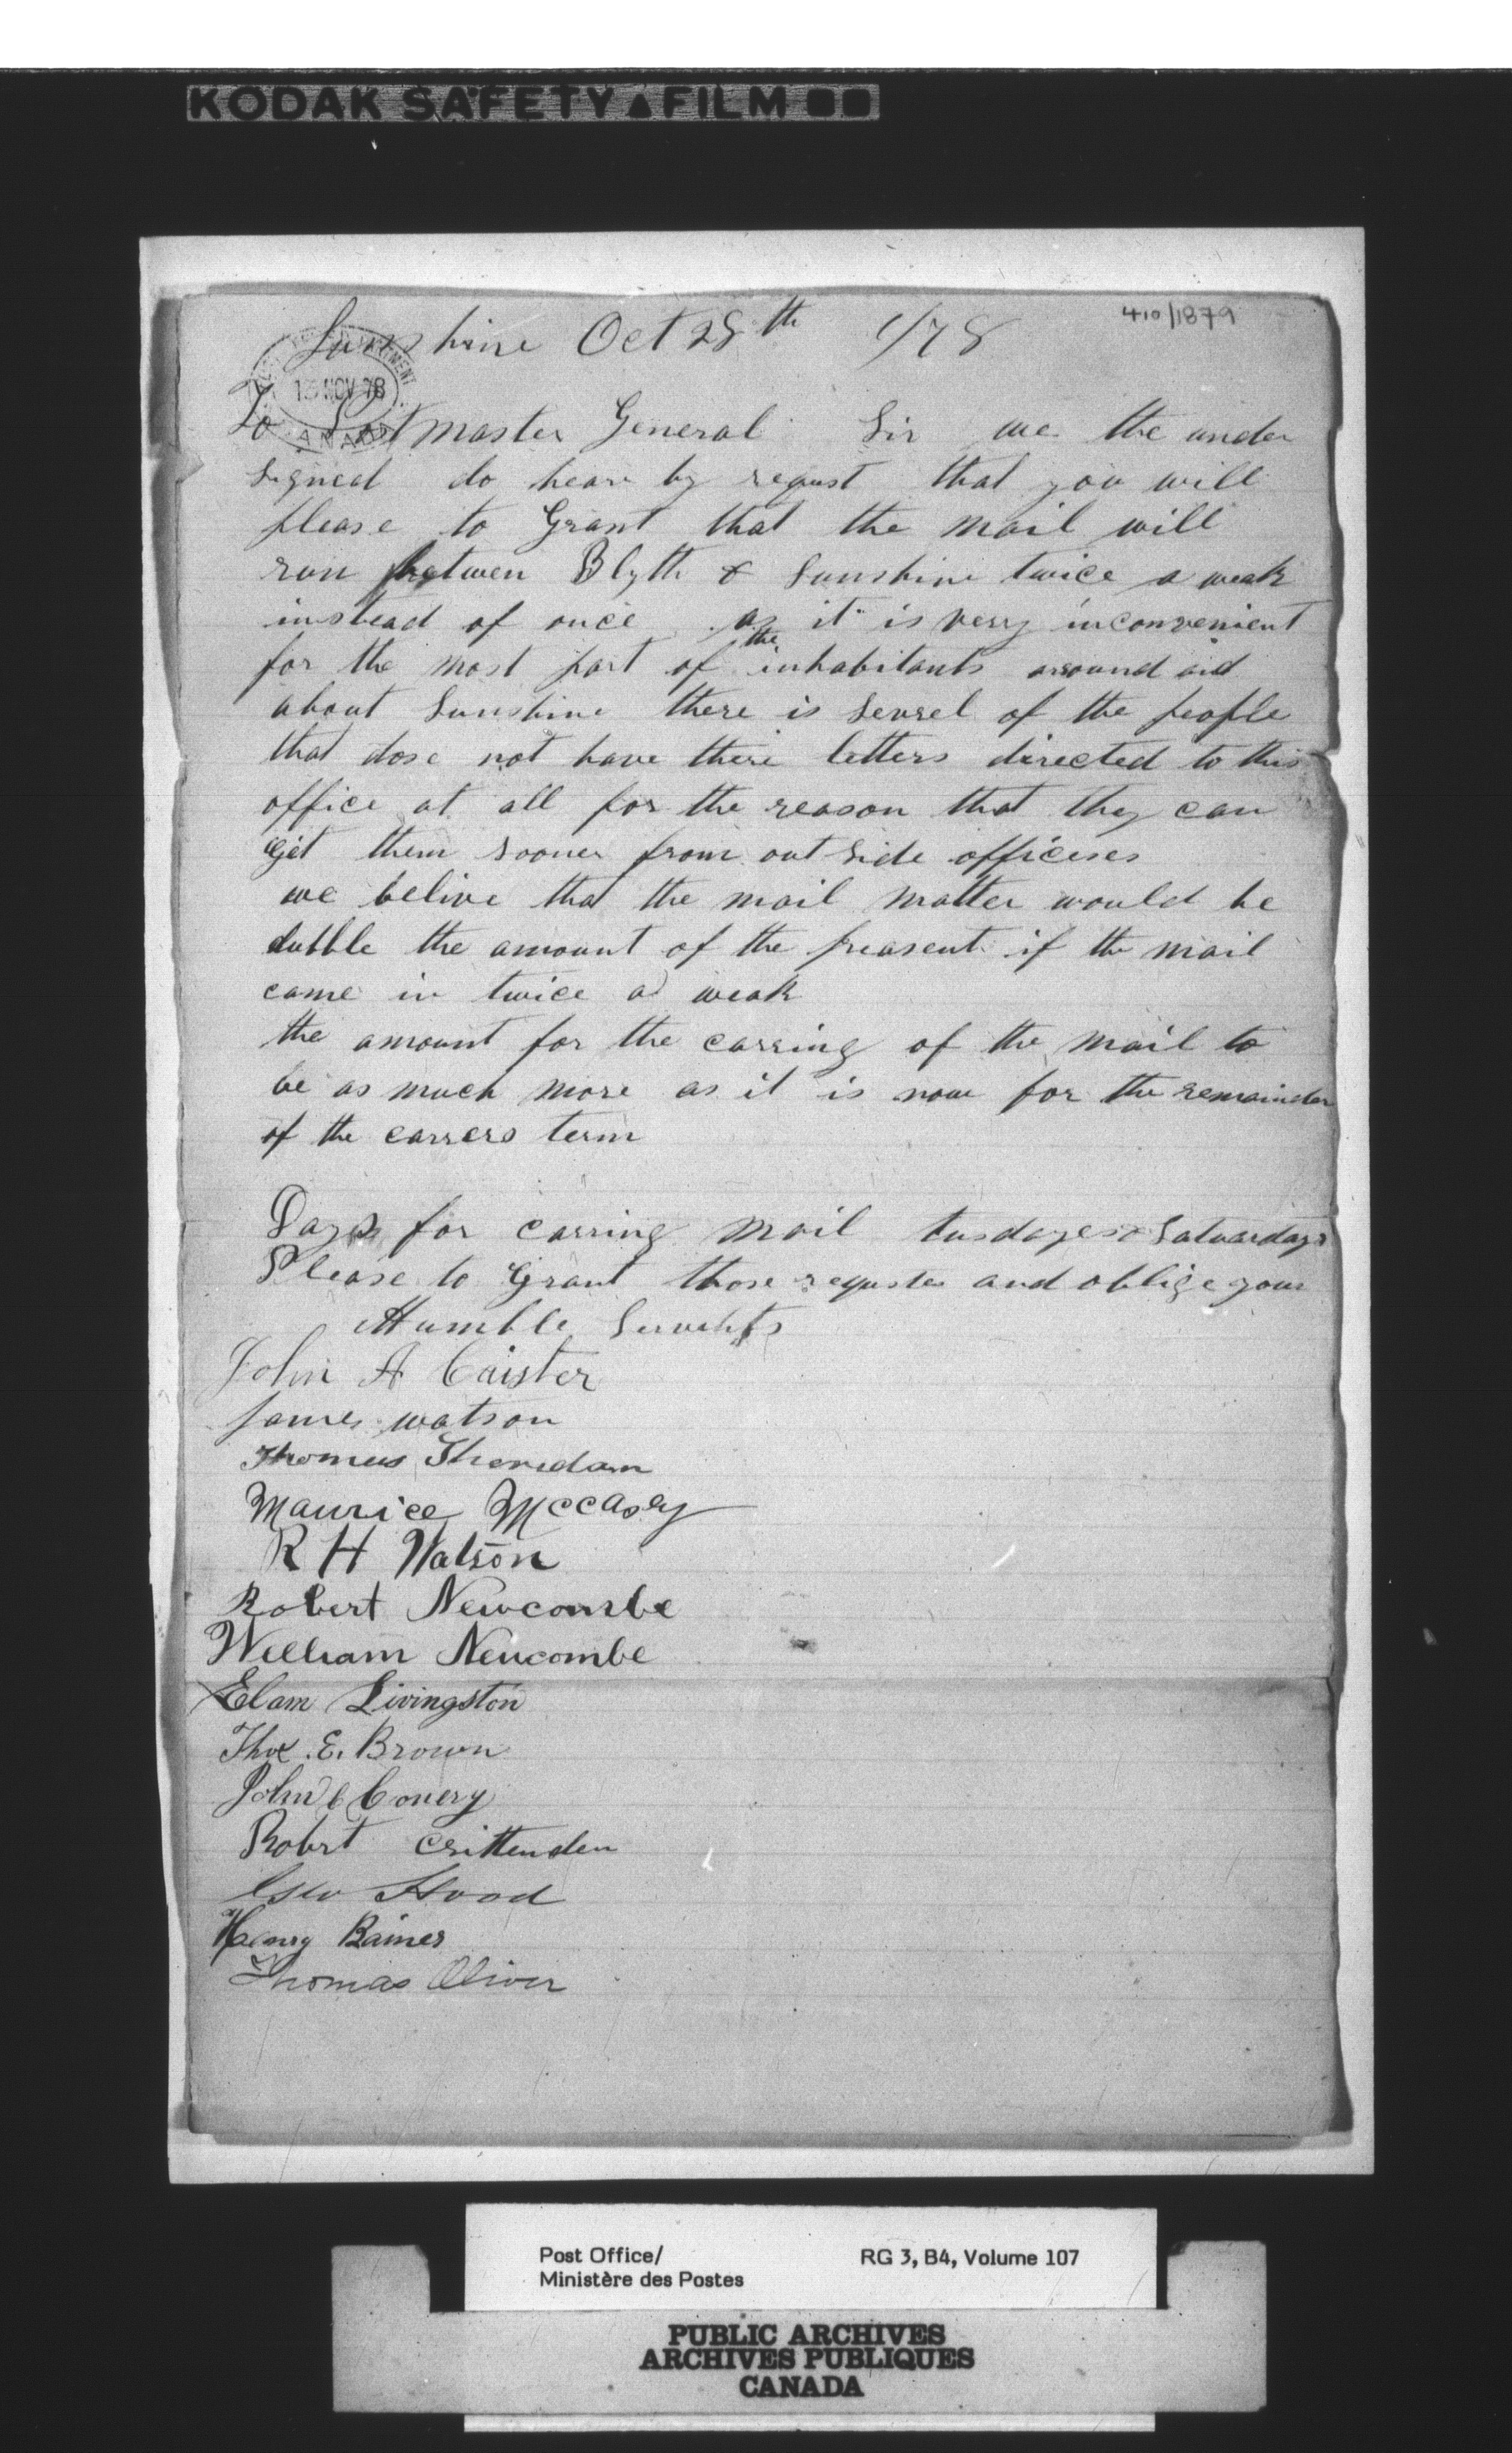 KODAK SAFETY FILM
410/1879
Sunshine Oct 28th 1/78
13 NOV 78
CANADA
To Postmaster General Sir we the under
signed do hear by requst that you will
please to Grant that the mail will
run betwen Blyth & Sunshine twice a weak
instead of once as it is very inconvenient
for the most part of the inhabitants arround and
about Sunshine there is sevrel of the people
that dose not have there letters directed to this
office at all for the reason that they can
get them sooner from out side officeses
we belive that the mail matter would be
dubble the amount of the preasent if the mail
came in twice a weak
the amount for the carring of the mail to
be as much more as it is now for the remainder
of the carrers term
Days for carring mail tusdayes & Satuardays
Please to Grant those requstes and oblige your
Humble Servents
John A Caister
James watson
Thomas Sheredam
Maurice Mccasey
R H Watson
Robert Newcombe
William Newcombe
Elam Livingston
Thos. E. Brown
John C Conery
Robert Crittenden
Geo Hood
Henry Raines
Thomas Oliver
Post Office/
Ministère des Postes
RG 3, B4, Volume 107
PUBLIC ARCHIVES
ARCHIVES PUBLIQUES
CANADA